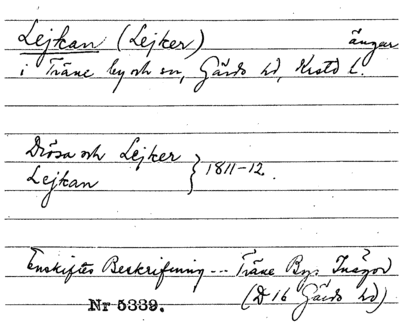 Lejkan (Lejker) ängar
i Träne by och sn, Gärds hd, Krstd l.
Drösa och Lejker
Lejkan } 1811-12.
Enskiftes Beskrifning --- Träne Bys Inägor
Nr 5339. (D 16 Gärds hd)